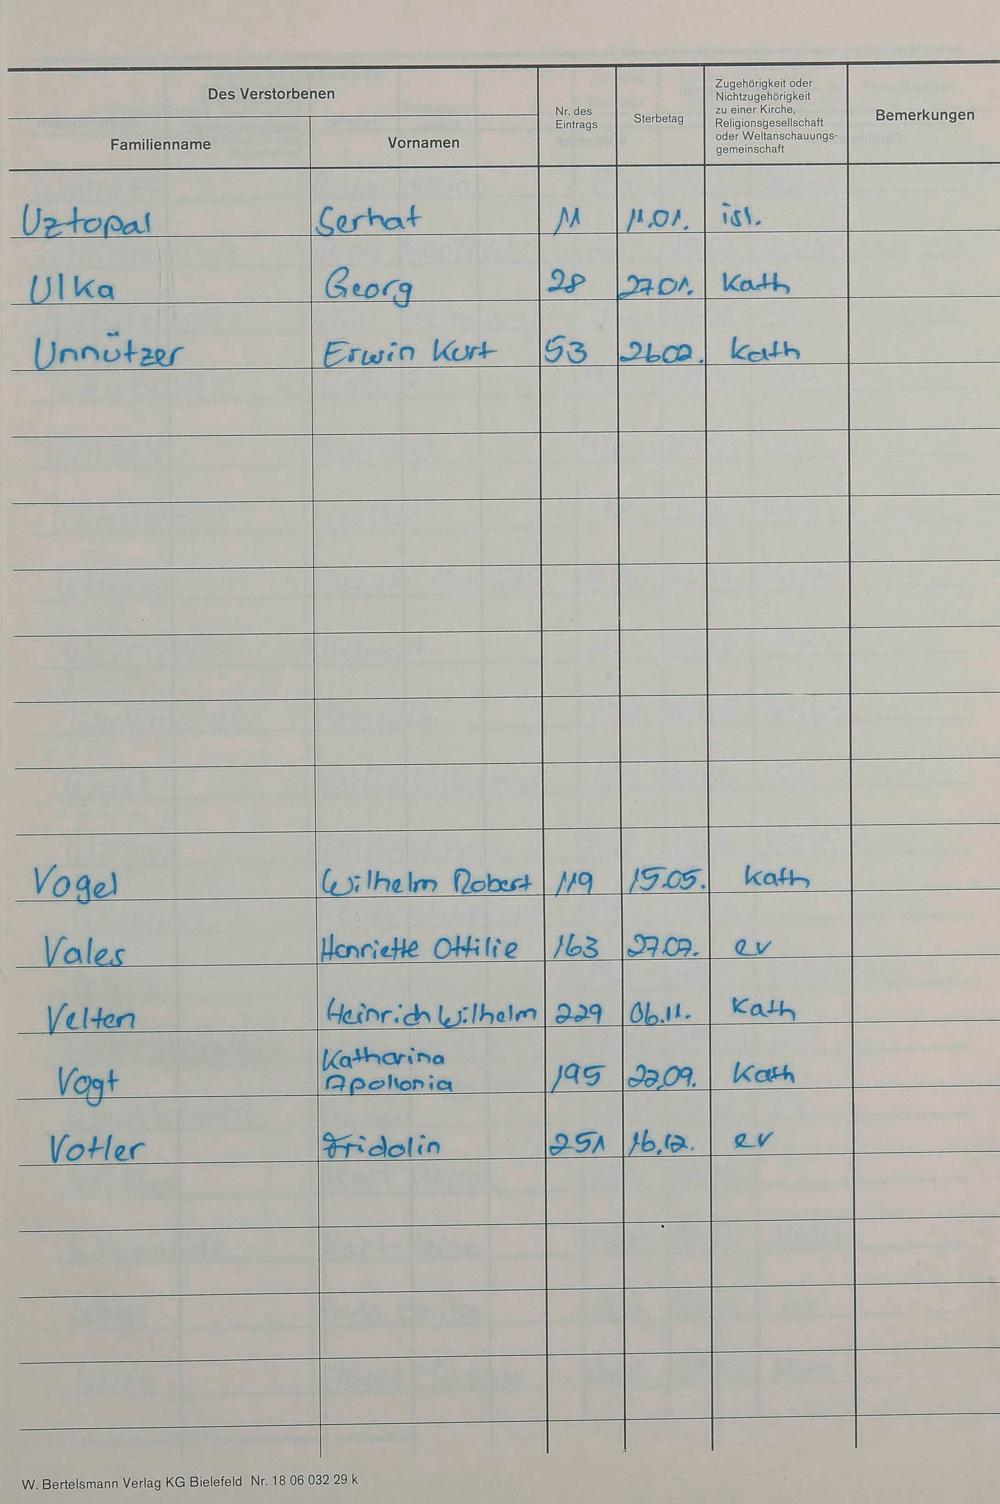 Des Verstorbenen
Familienname
Vornamen
Nr. des
Eintrags
Sterbetag
Zugehörigkeit oder
Nichtzugehörigkeit
zu einer Kirche,
Religionsgesellschaft
oder Weltanschauungs-
gemeinschaft
Bemerkungen
Uztopal Serhat 11 11.01. isl.
Ulka Georg 28 27.01. Kath
Unnützer Erwin Kurt 53 26.02. kath
Vogel Wilhelm Robert 119 15.05. kath
Vales Henriette Ottilie 163 27.07. ev
Velten Heinrich Wilhelm 229 06.11. Kath
Vogt Katharina
Apollonia 195 22.09. Kath
Votler Fridolin 251 16.12. ev
W. Bertelsmann Verlag KG Bielefeld Nr. 18 06 032 29 k